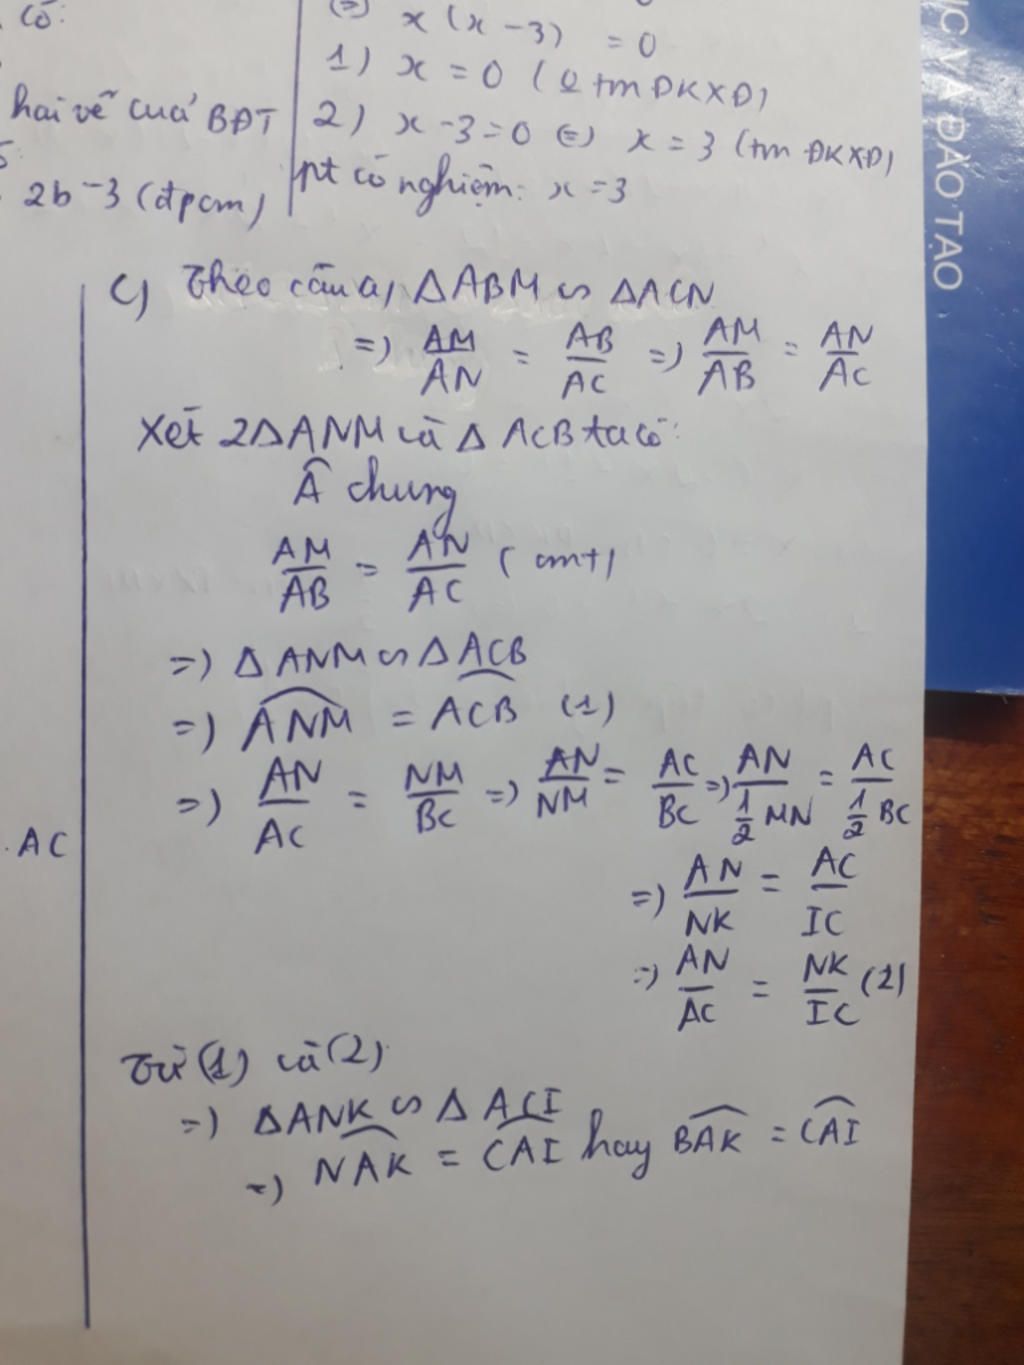 có:
hai vế của BĐT
2b - 3 (đpcm)
(=) x (x - 3) = 0
1) x = 0 (ko tm ĐKXĐ)
2) x - 3 = 0 (=) x = 3 (tm ĐKXĐ)
pt có nghiệm: x = 3
C) Theo câu a, ΔABM ∽ ΔACN
=) AM/AN = AB/AC =) AM/AB = AN/AC
Xét 2ΔANM và Δ ACB ta có:
Â chung
AM/AB = AN/AC (cmt)
=) ΔANM ∽ ΔACB
=) ANM = ACB (1)
=) AN/AC = NM/BC =) AN/NM = AC/BC =) AN/(1/2 MN) = AC/(1/2 BC)
. AC
=) AN/NK = AC/IC
=) AN/AC = NK/IC (2)
Từ (1) và (2)
=) ΔANK ∽ Δ ACI
=) NAK = CAI hay BAK = CAI
VÀ ĐÀO TẠO